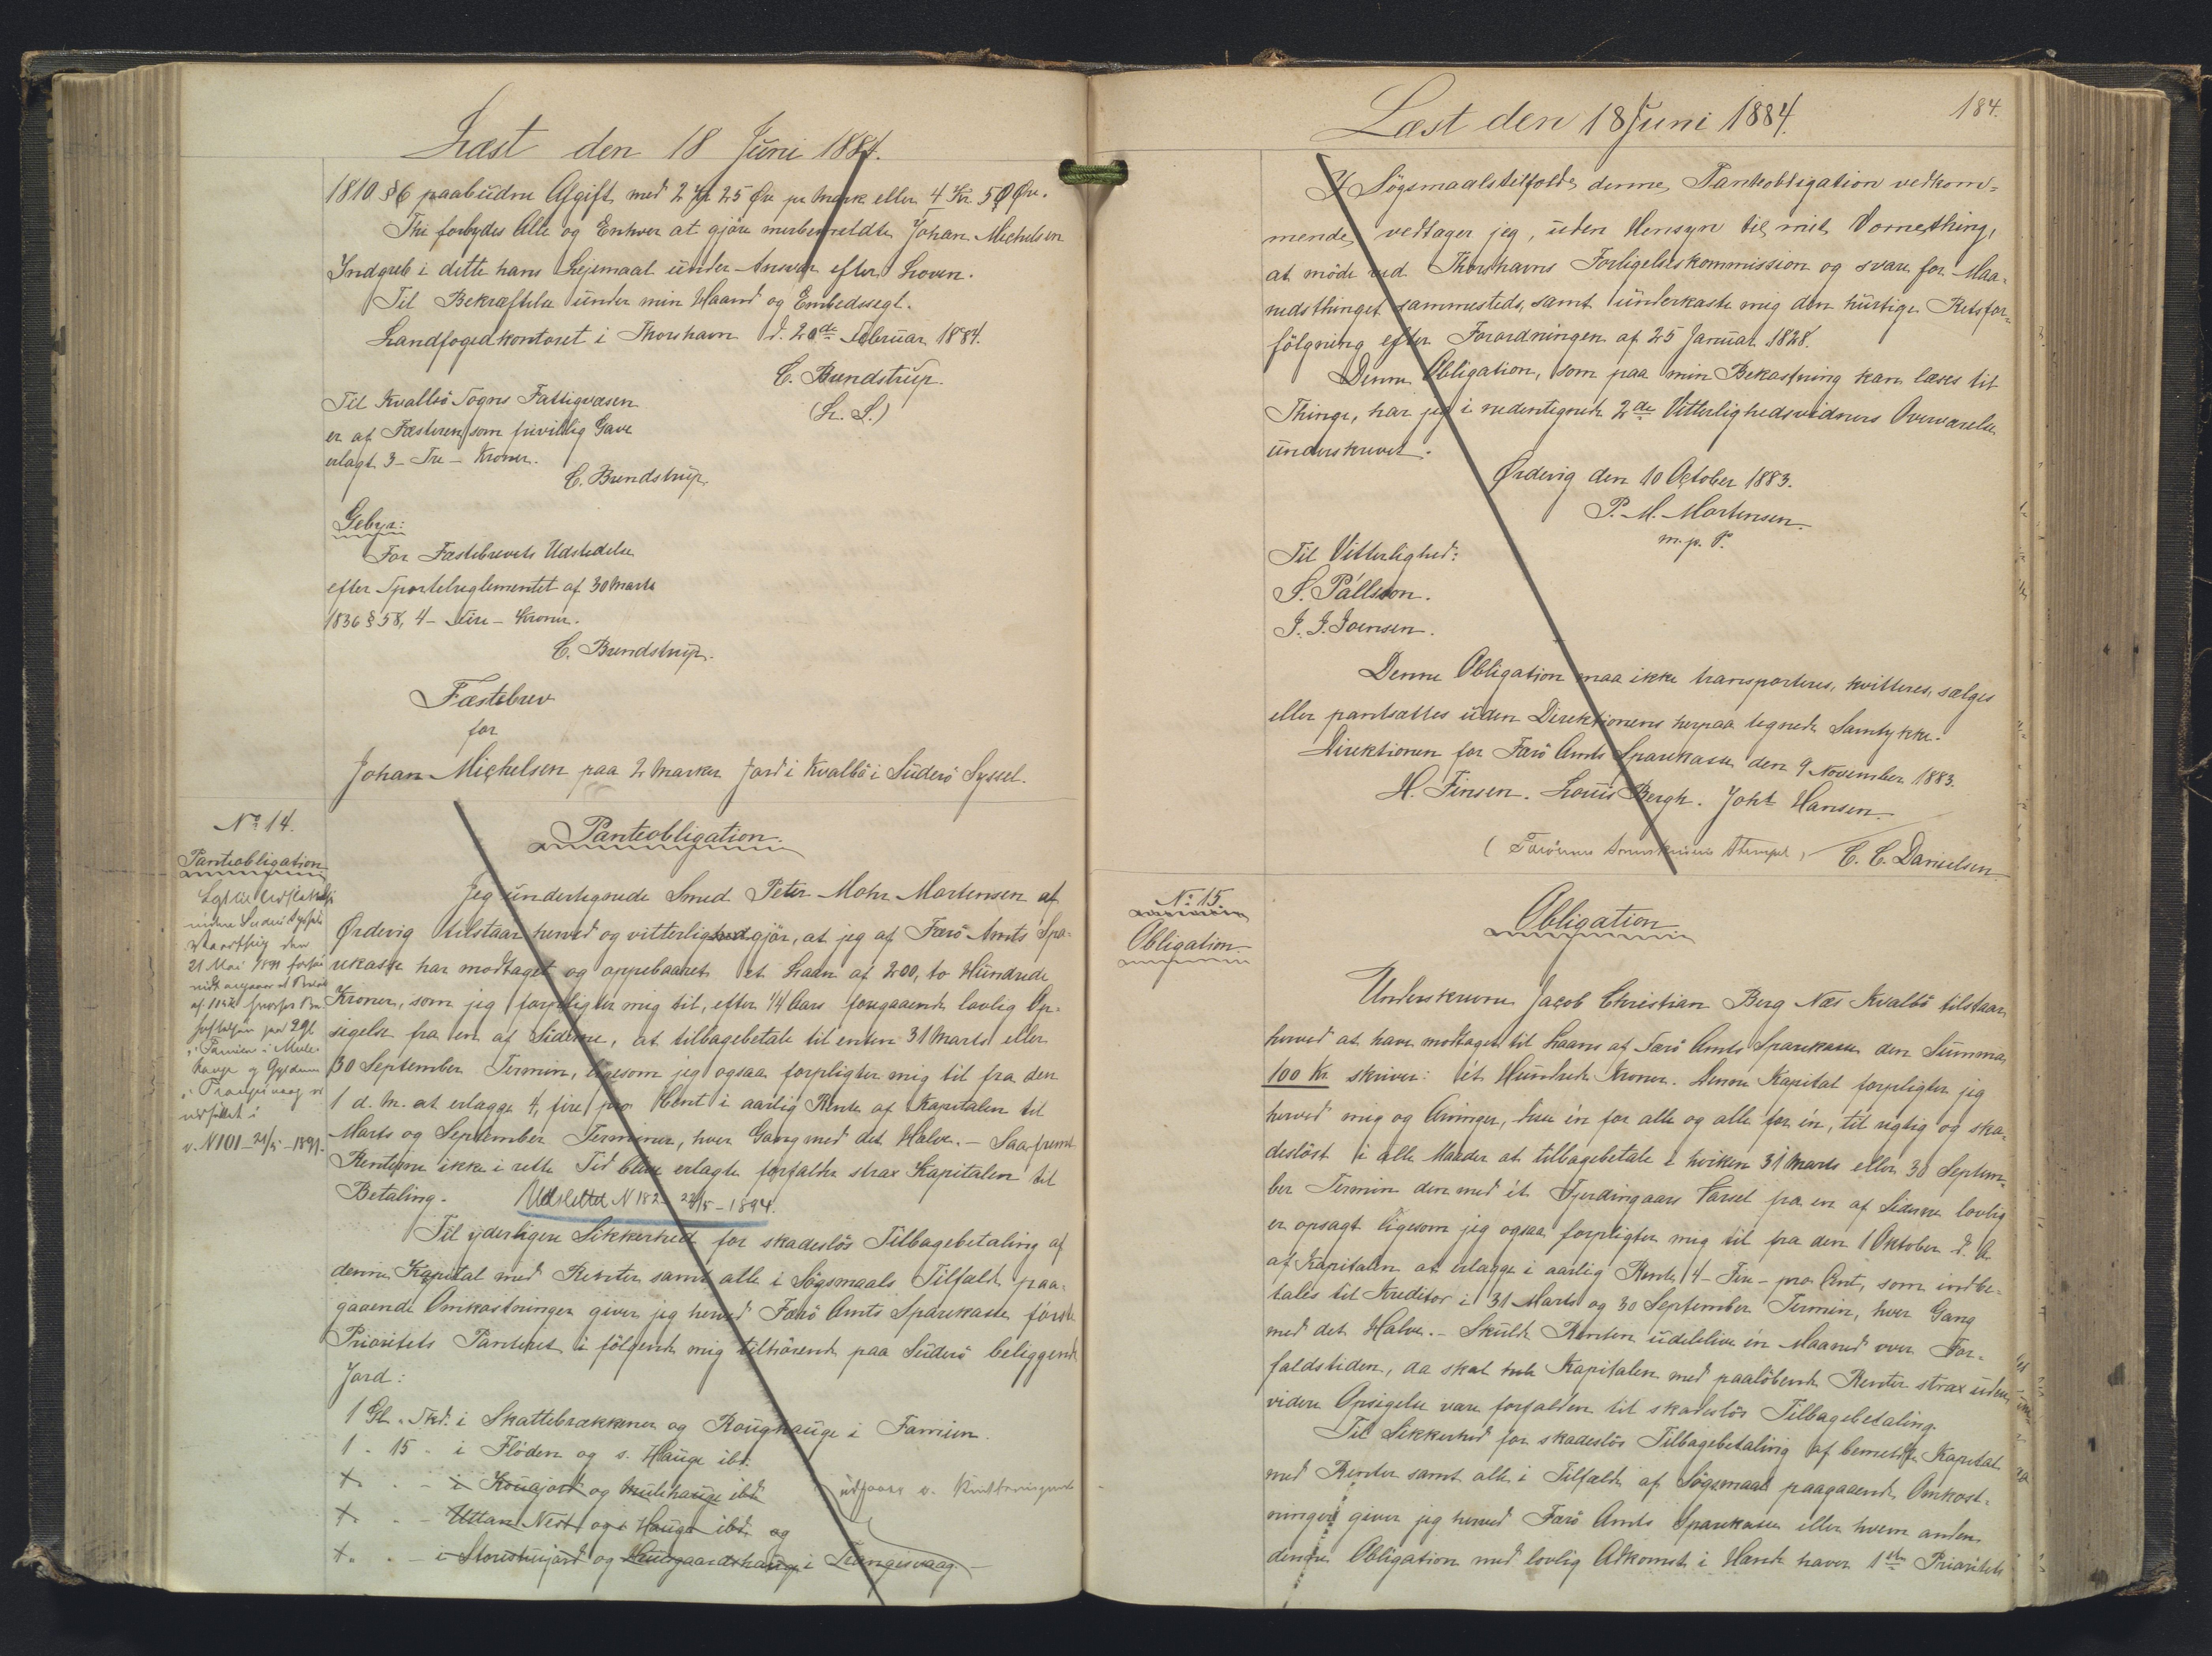 Læst den 18 Juni 1884.
1810 §6 paabudne Afgift med 2 Kr 25 Øre pr Mark eller 4 Kr. 50 Øre.
Thi forbydes Alle og Enhver at gjöre merbemeldte Johan Michelsen
Indgreb i dette hans Lejemaal under Ansvar efter Loven.
Til Bekræftelse under min Haand og Embedssegl.
Landfogedkontoret i Thorshavn d. 20de Februar 1884.
C. Bundstrup.
(L. S.)
Til Kvalbö Sogns Fattigvæsen
er af Fæsteren som frivillig Gave
erlagt 3 - Tre - Kroner.
C. Bundstrup.
Gebyr:
For Fæstebrevets Udstedelse
efter Sportelreglementet af 30 Marts
1836 § 58, 4 - Fire - Kroner.
C. Bundstrup.
Fæstebrev
for
Johan Michelsen paa 2 Marker Jord i Kvalbö i Süderö Syssel.
No 14.
Panteobligation
21 Mai 1891
v. N 101 - 21/5 - 1891.
Panteobligation.
Jeg undertegnede Smed Peter Mohr Mortensen af
Ørdevig tilstaar herved og vitterlighed gjör, at jeg af Færö Amts Spa-
rekasse har modtaget og oppebaaret et Laan af 200, to Hundrede
Kroner, som jeg forpligter mig til, efter 1/4 Aars foregaaende lovlig Op-
sigelse fra en af Siderne, at tilbagebetale til enten 31 Marts eller
30 September Termin, ligesom jeg ogsaa forpligter mig til fra den
1 d. M. at erlægge 4, fire pro Cent i aarlig Rente af Kapitalen til
Marts og September Terminer, hver Gang med det Halve. - Saafremt
Renterne ikke i rette Tid blive erlagte forfalder strax Kapitalen til
Betaling. Udslettet N 182 - 22/5 - 1894.
Til yderligere Sikkerhed for skadeslös Tilbagebetaling af
denne Kapital med Renter samt alle i Sögsmaals Tilfælde paa-
gaaende Omkostninger giver jeg herved Færö Amts Sparekasse förste
Prioritets Panteret i fölgende mig tilhörende paa Süderö beliggende
Jord:
1 Gl. " Skd. i Skattebrækkener og Roughauge i Famien.
1 " 15 " i Flöden og s. Hauge ibd.
" " - i Kougjord og Mulehauge ibd
" " - Uttan Nest og i Hauge ibd. og
" " - i Storstuijord og Lungaardshauge i Trangisvaag.
Læst den 18 Juni 1884.
184.
I Sögsmaalstilfælde, denne Panteobligation vedkom-
mende, vedtager jeg, uden Hensyn til mit Vornething,
at möde ved Thorshavns Forligelseskommission og svare for Maa-
nedsthinget sammesteds, samt underkaste mig den hurtige Retsfor-
fölgning efter Forordningen af 25 Januar 1828.
Denne Obligation, som paa min Bekostning kan læses til
Thinge, har jeg i nedentegnede 2de Vitterlighedsvidners Overværelse
underskrevet.
Ørdevig den 10 October 1883.
P. M. Mortensen.
m. p. P.
Til Vitterlighed:
S. Pállsson.
J. J. Joensen.
Denne Obligation maa ikke transporteres, kvitteres, sælges
eller pantsættes uden Direktionens herpaa tegnede Samtykke.
Direktionen for Færö Amts Sparekasse den 9 November 1883.
H. Finsen. Louis Bergh. Joh! Hansen.
C. C. Danielsen.
No 15.
Obligation.
Obligation
Underskrevne Jacob Christian Berg Næs Kvalbö tilstaar
herved at have modtaget til Laans af Færö Amts Sparekasse den Summa
100 Kr. skriver: ét Hundrede Kroner. Denne Kapital forpligter jeg
herved mig og Arvinger, Een én for alle og alle for én, til rigtig og ska-
deslöst i alle Maader at tilbagebetale i hvilken 31 Marts eller 30 Septem-
ber Termin den med ét Fjerdingaars Varsel fra en af Siderne lovlig
er opsagt ligesom jeg ogsaa forpligter mig til fra den 1 Oktober d. A
af Kapitalen at erlægge i aarlig Rente 4 - Fire - pro Cent, som indbe-
tales til Kreditor i 31 Marts og 30 September Termin, hver Gang
med det Halve. - Skulde Renten udeblive én Maaned over For-
faldstiden, da skal hele Kapitalen med paalöbende Renter strax uden
videre Opsigelse være forfalden til skadeslös Tilbagebetaling.
Til Sikkerhed for skadeslös Tilbagebetaling af bemeldte Kapital
med Renter samt alle i Tilfælde af Sögsmaal paagaaende Omkost-
ninger giver jeg herved Færö Amts Sparekasse eller hvem anden
denne Obligation med lovlig Adkomst i Hænde haver 1ste Prioritets